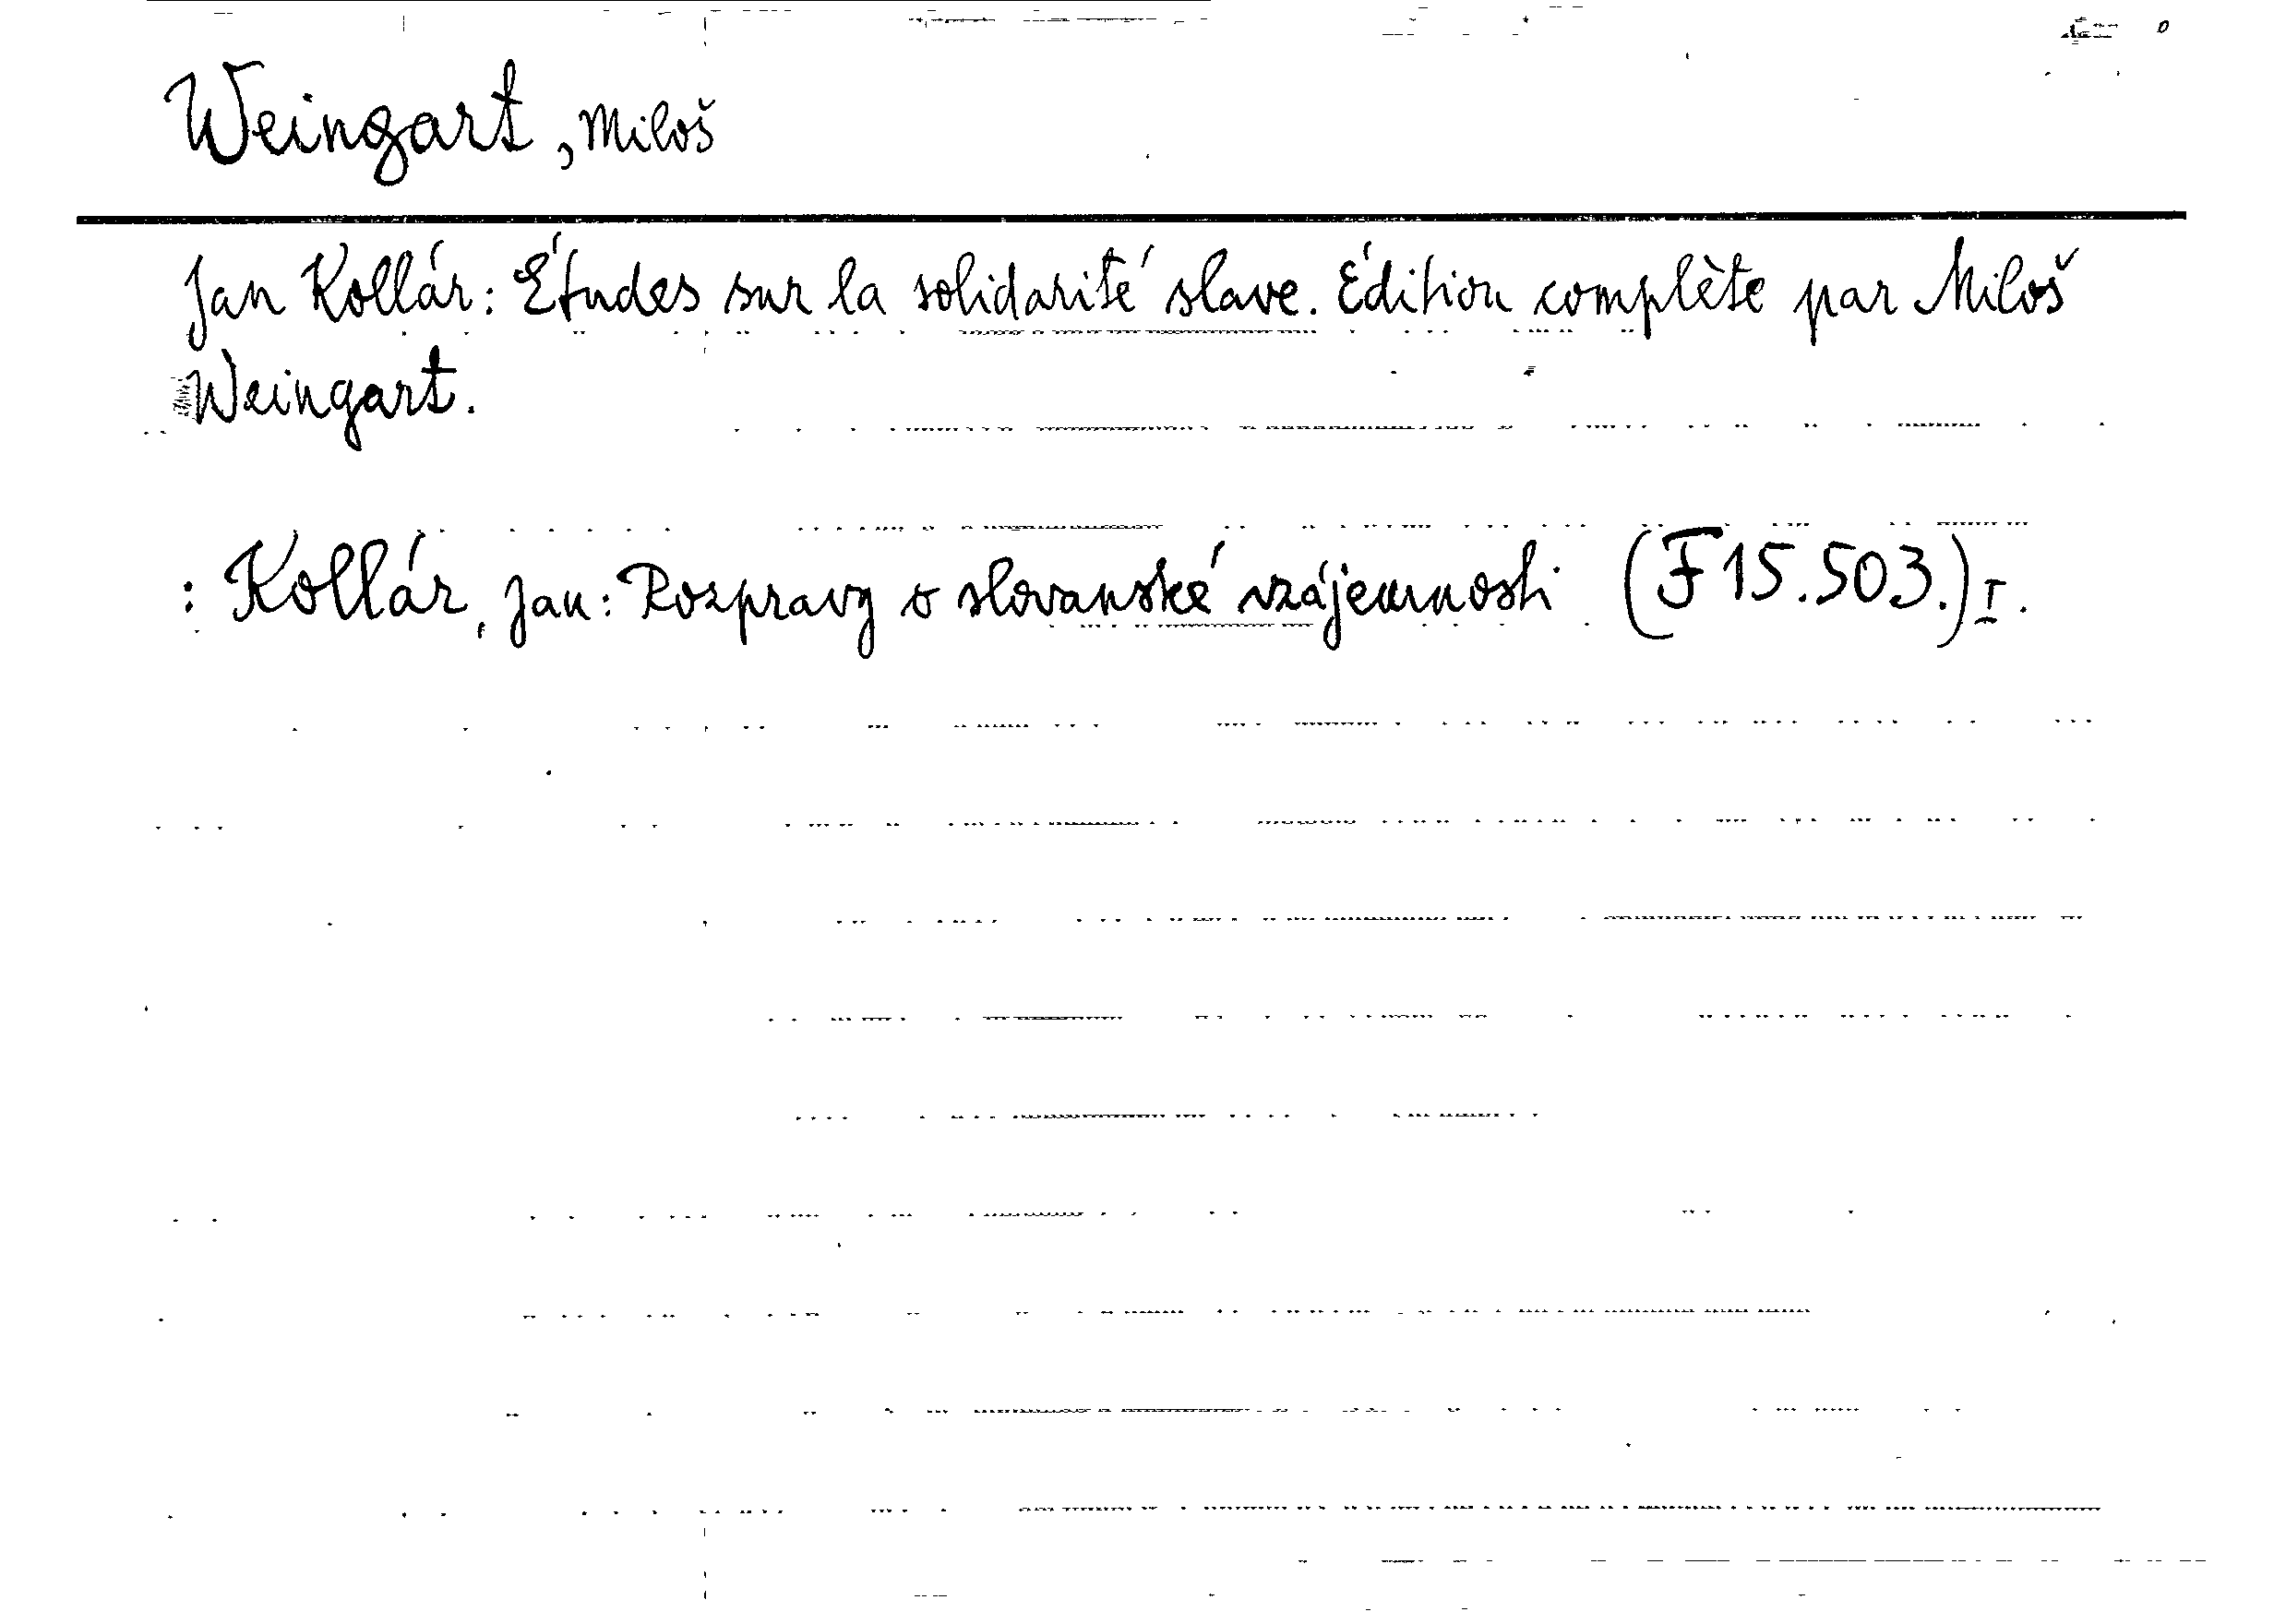 Weingart, Miloš
Jan Kollár: Études sur la solidarité slave. Édition complète par Miloš
Weingart.
: Kollár, Jan: Rozpravy o slovanské vzájemnosti (F 15.503.) I.